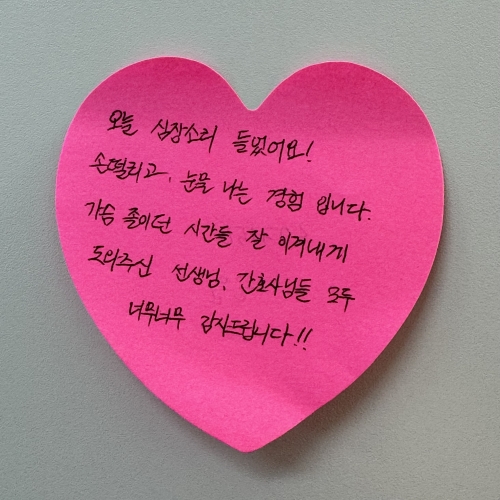 오늘 심장소리 들었어요!
손떨리고, 눈물 나는 경험 입니다.
가슴 졸이던 시간들 잘 이겨내게
도와주신 선생님, 간호사님들 모두
너무너무 감사드립니다!!